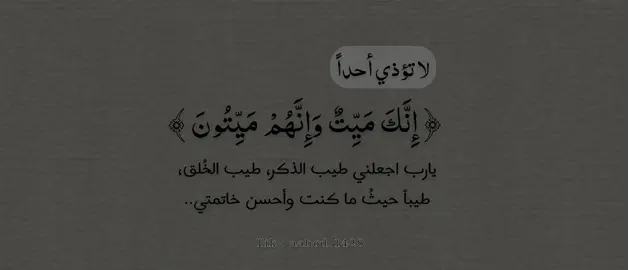 لا تؤذي أحداً
﴿ إِنَّكَ مَيِّتٌ وَإِنَّهُمْ مَيِّتُونَ ﴾
يارب اجعلني طيب الذكر، طيب الخُلق،
طيباً حيثُ ما كنت وأحسن خاتمتي..